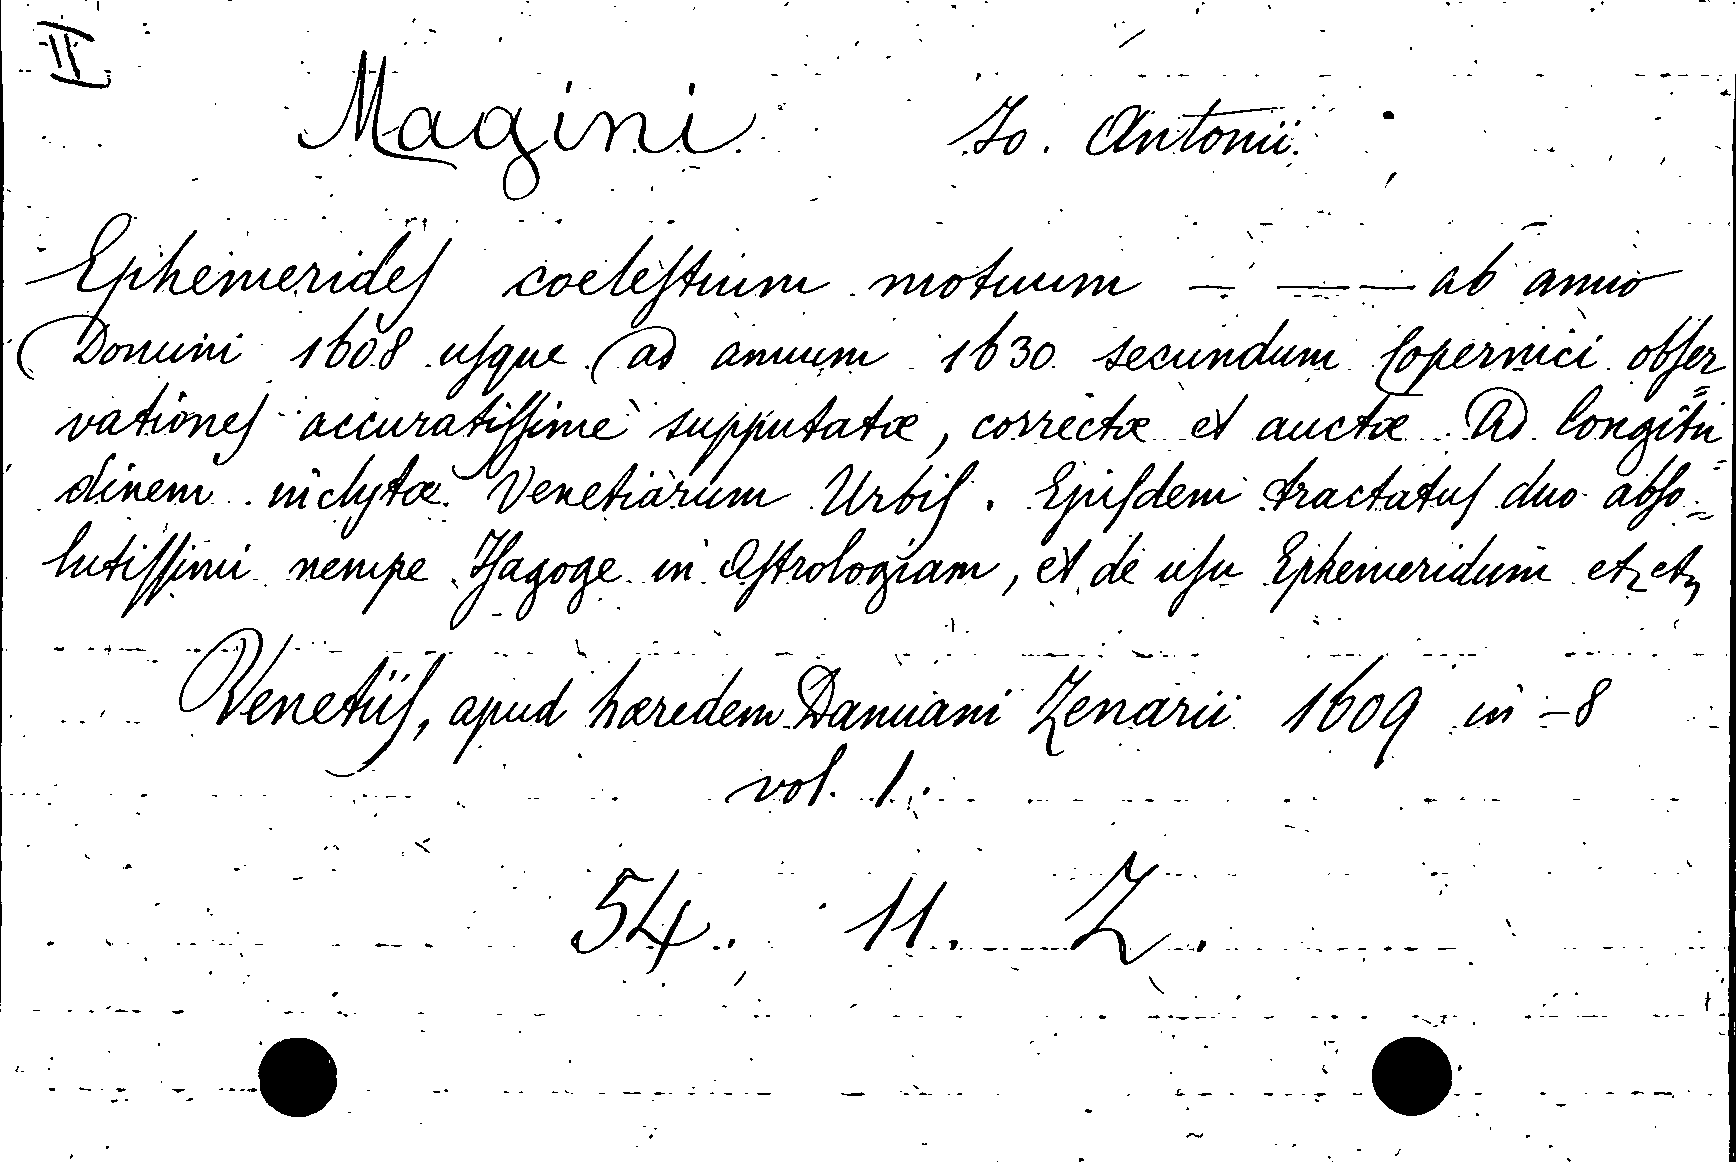 II
Magini Jo. Antonii.
Ephemerides coelestium motuum — — — ab anno
Domini 1608 usque ad annum 1630 secundum Copernici obser=
vationes accuratissime supputatæ, correctæ et auctæ Ad longitu=
dinem inclytæ Venetiarum Urbis. Ejusdem tractatus duo abso=
lutissimi nempe Isagoge in Astrologiam, et de usu Ephemeridum etc etc
Venetiis, apud hæredem Damiani Zenarii 1609 in-8
vol. 1.
54. 11. Z.